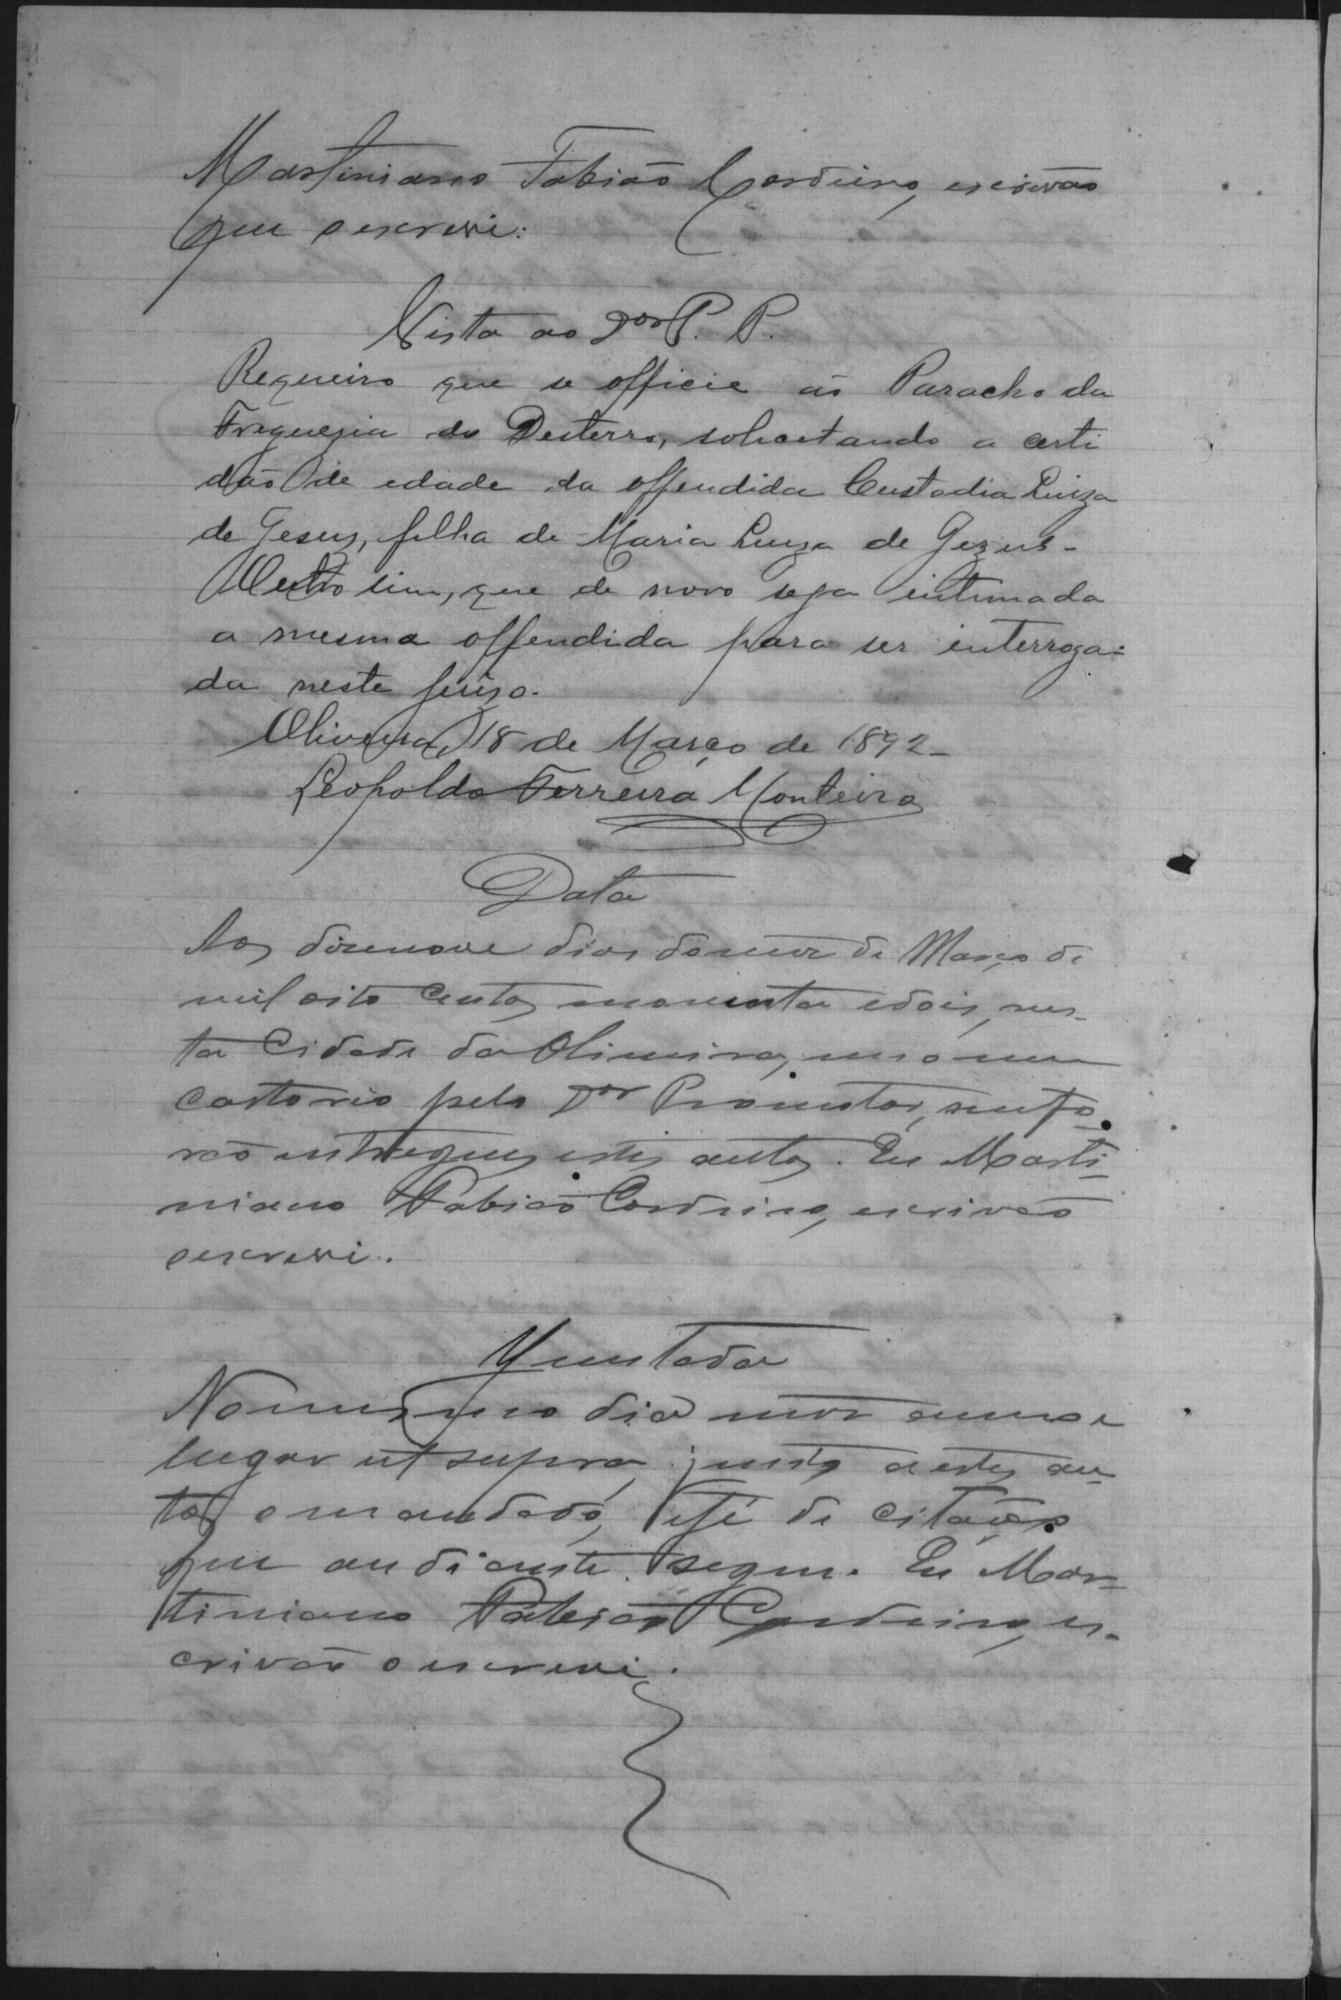 Martiniano Fabião Cordeiro, escrivão
que o escrevi:
Vista ao Dor P. P.
Requeiro que se officie ao Paracho da
Freguezia do Desterro, solicitando a certi
dão de edade da offendida Custodia Luiza
de Jesus, filha de Maria Luiza de Gezus-
Outro sim, que de novo seja intimada
a mesma offendida para ser interroga-
da neste juizo.
Oliveira, 18 de Março de 1892-
Leopoldo Ferreira Monteiro
Data
Aos dizenove dias do mez de Março de
mil oito centos noventa e dois, nes-
ta Cidade da Oliveira, em o meu
cartorio pelo Dor Promotor, me fo-
rão entregues estes autos. Eu Marti-
niano Fabião Cordeiro, escrivão
o escrevi.
Juntada
No mesmo dia mez anno e
lugar ut supra, junto a estes au-
tos o mandado, e fé de citação
que an diante segue. Eu Mar-
tiniano Fabião Cordeiro, es-
crivão o escrevi.